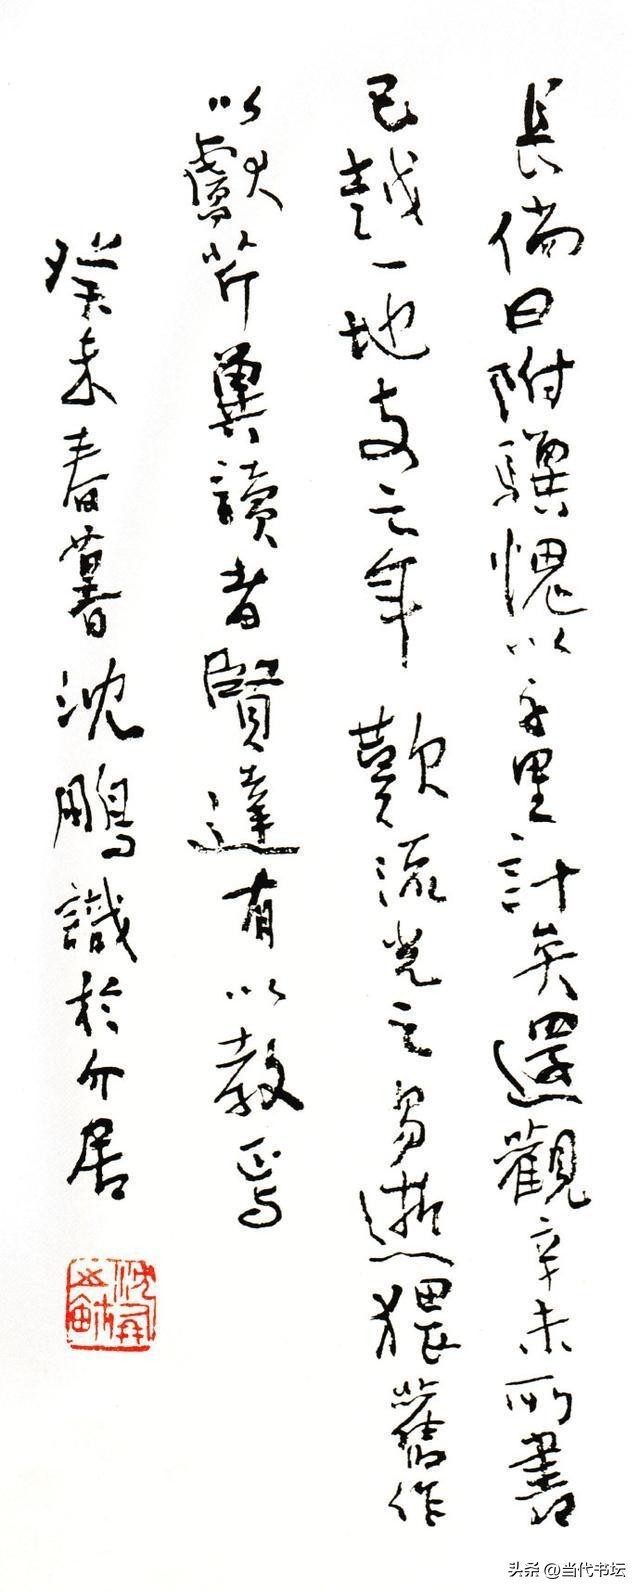 長倘曰附驥愧以千里計矣還觀辛未所書
已越一地支之年歎流光之易逝猥舊作
以獻芹冀讀者賢達有以教焉
癸未春暮沈鵬識於介居
头条 @当代书坛